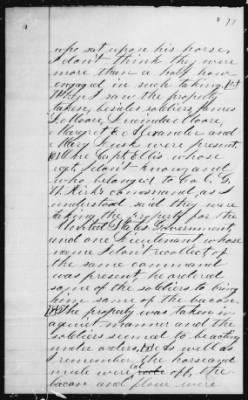 77
who sat upon his horse,
I don't think they were
more than a half hour
engaged in such taking.
When I saw the property
taken, besides soldiers, James
L. Moore, Lucinda Moore,
Margret E. Alexander and
Mary Lusk were present.
One Capt. Ellis whose
regt. I don't know, and
who belonged to Col. G.
W. Kirk's command, as I
understood said they were
taking the property for the
United States Government,
and one Lieutenant whose
name I don't recollect of
the same command
was present he ordered
some of the soldiers to bring
him some of the bacon.
The property was taken in
against manner and the
soldiers seemed to be acting
under orders. As well as I
remember, the horse and
mule were led off, the
bacon and flour were